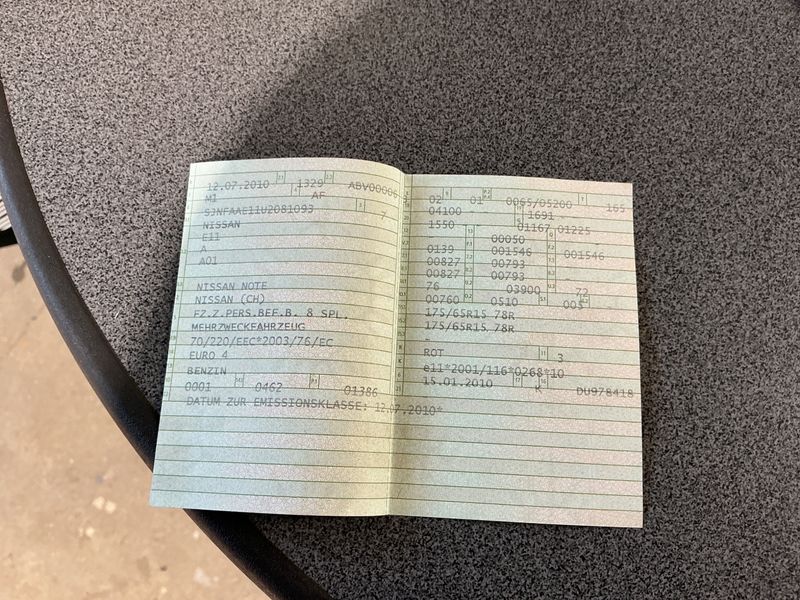 12.07.2010 1329 ABV00006
M1 AF
SJNFAAE11U2081093 7
NISSAN
E11
A
A01
NISSAN NOTE
NISSAN (CH)
FZ.Z.PERS.BEF.B. 8 SPL.
MEHRZWECKFAHRZEUG
70/220/EEC*2003/76/EC
EURO 4
BENZIN
0001 0462 01386
DATUM ZUR EMISSIONSKLASSE: 12.07.2010*
02 01 0065/05200 165
04100 - 1691
1550 - 01167 01225
00050
0139 001546 001546
00827 00793 -
00827 00793 -
76 03900 72
00760 0510 005
175/65R15 78R
175/65R15 78R
-
ROT 3
e11*2001/116*0268*10
15.01.2010 K DU978418